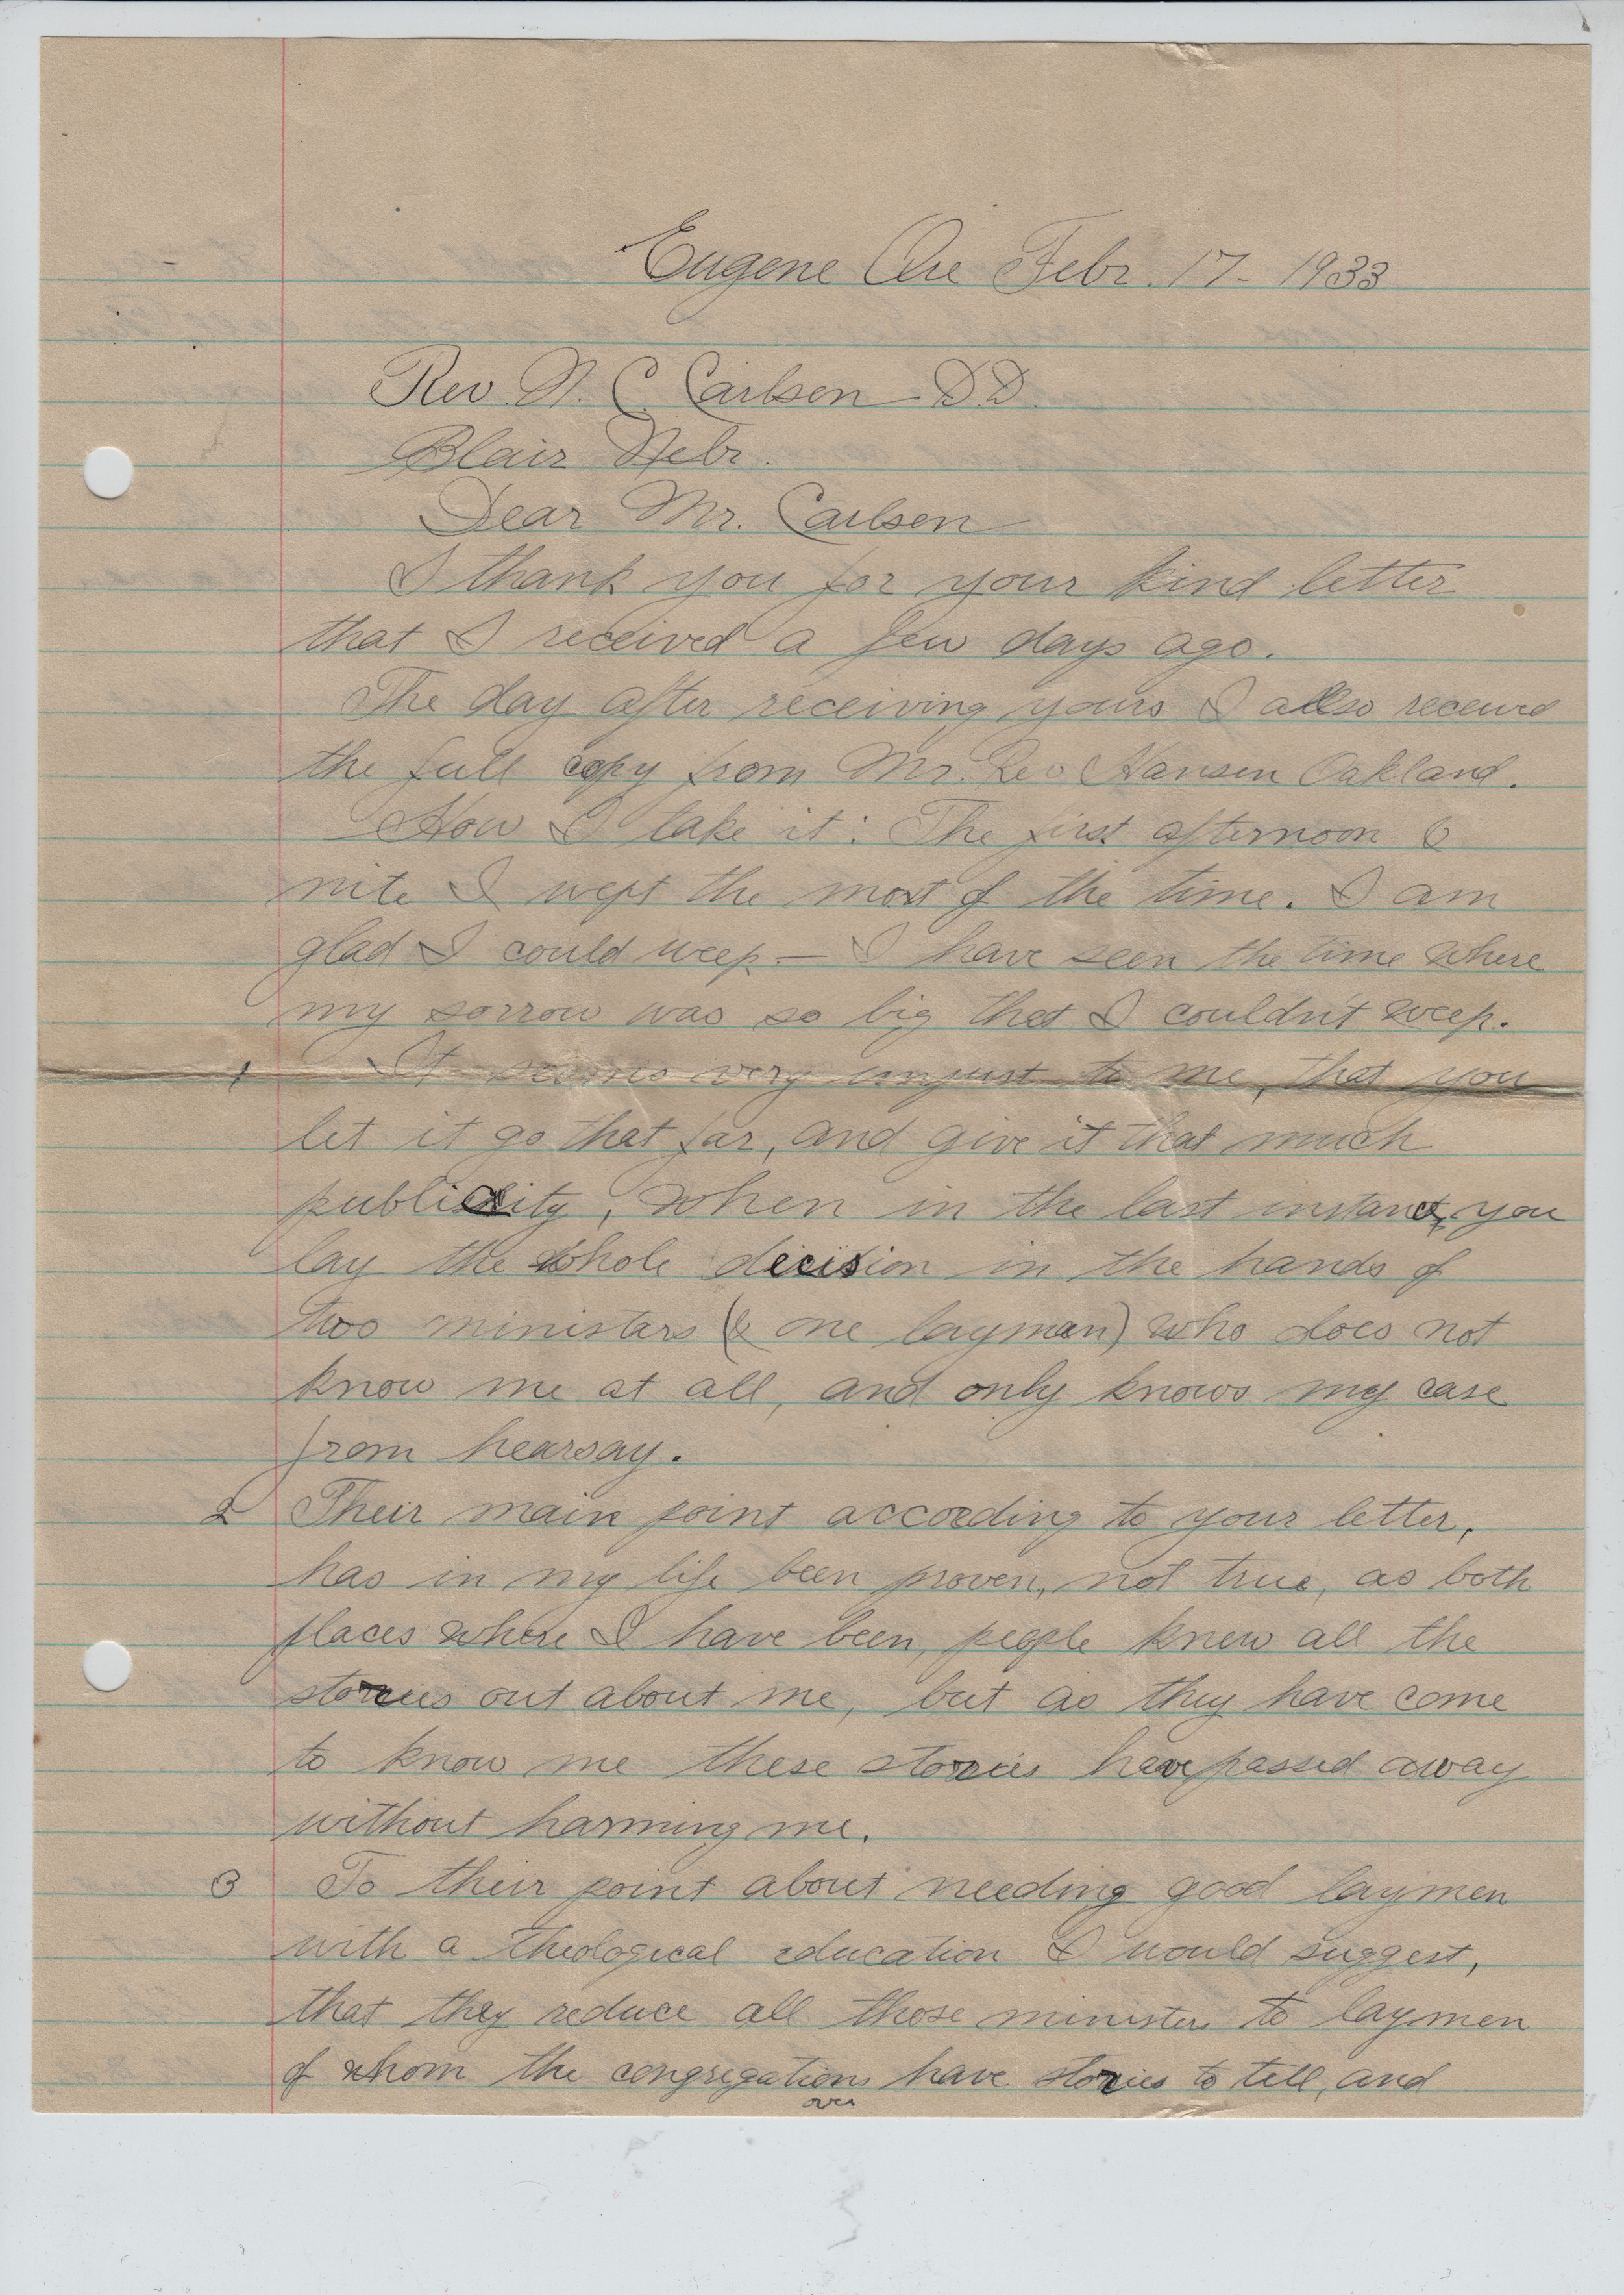 Eugene Ore Febr. 17 - 1933
Rev. N. C. Carlsen D.D.
Blair Nebr.
Dear Mr. Carlsen
I thank you for your kind letter
that I received a few days ago.
The day after receiving yours I also received
the full copy from Mr. Leo Hansen Oakland.
How I take it: The first afternoon &
nite I wept the most of the time. I am
glad I could weep — I have seen the time where
my sorrow was so big that I couldn't weep.
1 It seems very unjust to me, that you
let it go that far, and give it that much
publicity, when in the last instant, you
lay the whole decision in the hands of
two ministers (& one layman) who does not
know me at all, and only knows my case
from hearsay.
2 Their main point according to your letter,
has in my life been proven, not true, as both
places where I have been, people knew all the
stories out about me, but as they have come
to know me these stories have passed away
without harming me.
3 To their point about needing good laymen
with a theological education I would suggest,
that they reduce all those ministers to laymen
of whom the congregations have stories to tell, and
over